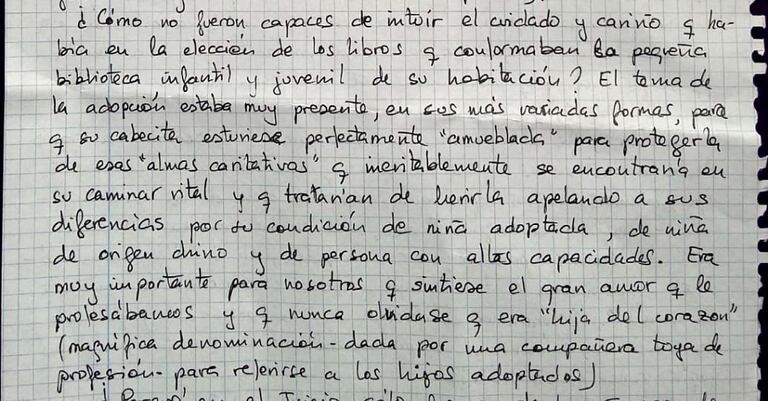 ¿Cómo no fueron capaces de intuir el cuidado y cariño q ha-
bía en la elección de los libros q conformaban la pequeña
biblioteca infantil y juvenil de su habitación? El tema de
la adopción estaba muy presente, en sus más variadas formas, para
q su cabecita estuviese perfectamente "amueblada" para protegerla
de esas "almas caritativas" q inevitablemente se encontraría en
su caminar vital y q tratarían de herirla apelando a sus
diferencias por su condición de niña adoptada, de niña
de origen chino y de persona con altas capacidades. Era
muy importante para nosotros q sintiese el gran amor q le
profesábamos y q nunca olvidase q era "hija del corazón"
(magnífica denominación - dada por una compañera tuya de
profesión - para referirse a los hijos adoptados)